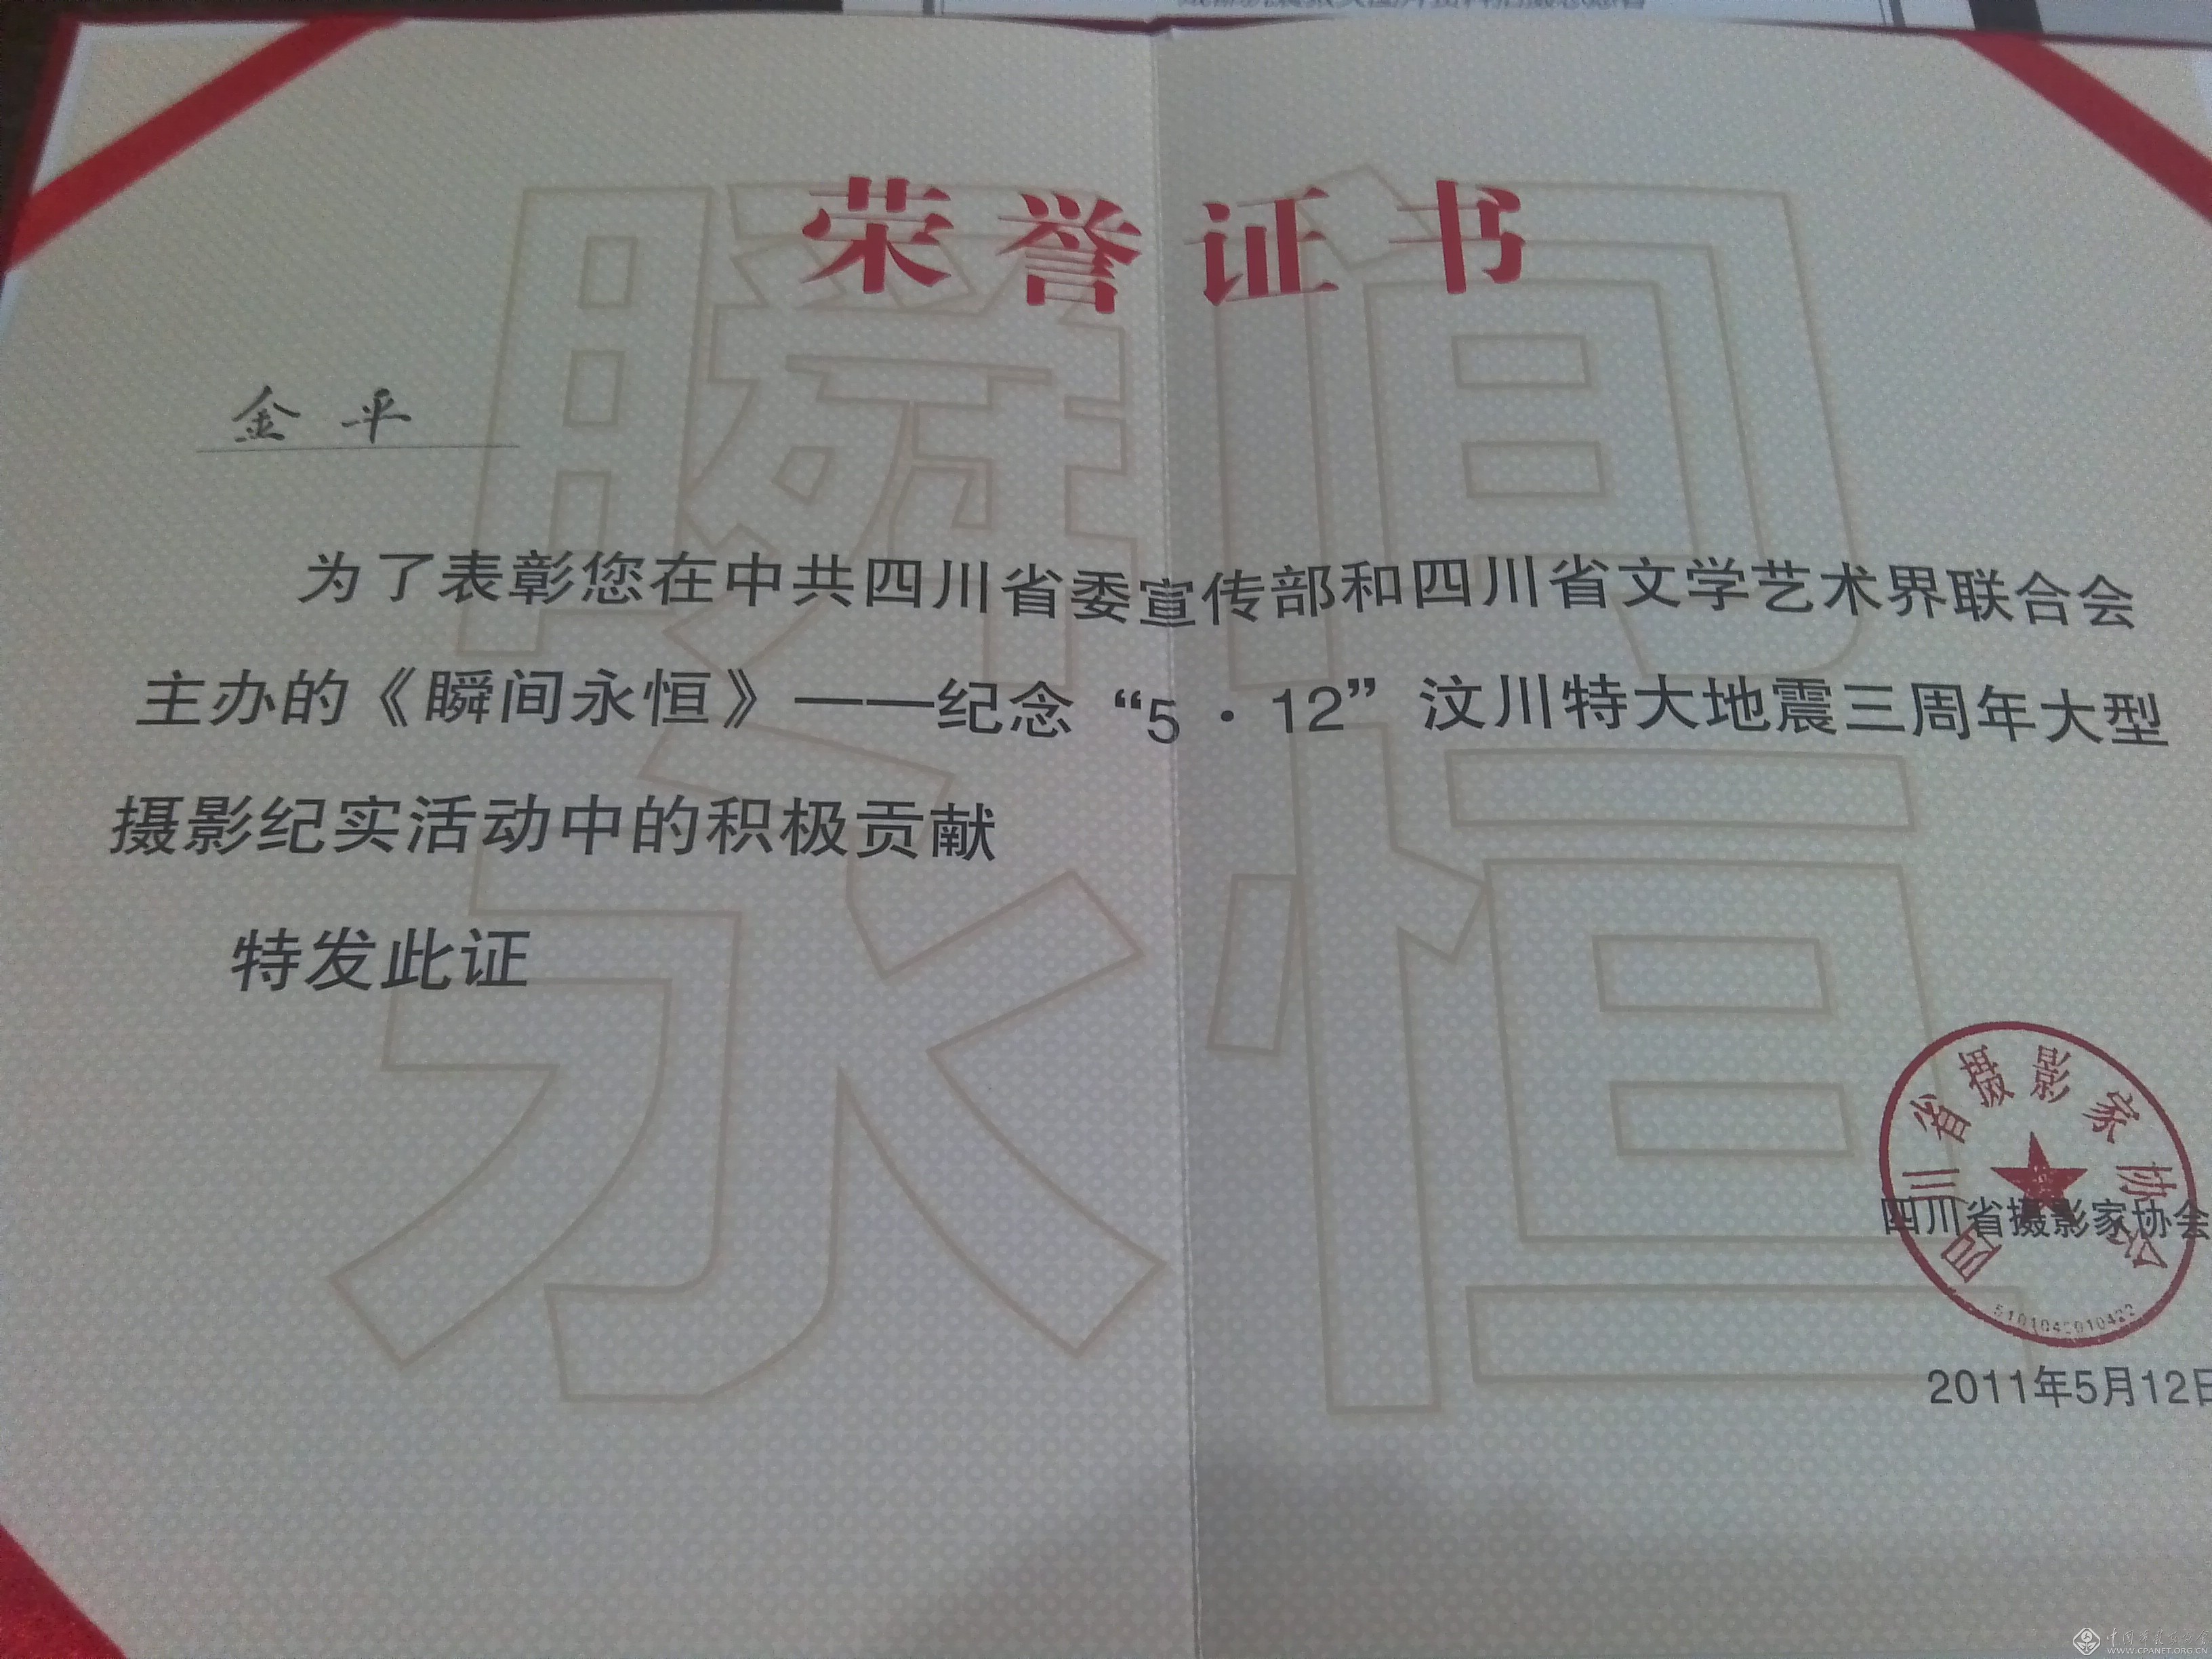 荣誉证书
金平
为了表彰您在中共四川省委宣传部和四川省文学艺术界联合会
主办的《瞬间永恒》——纪念“5·12”汶川特大地震三周年大型
摄影纪实活动中的积极贡献
特发此证
瞬间
永恒
四川省摄影家协会
四川省摄影家协会
2011年5月12日
WWW.CPANET.ORG.CN